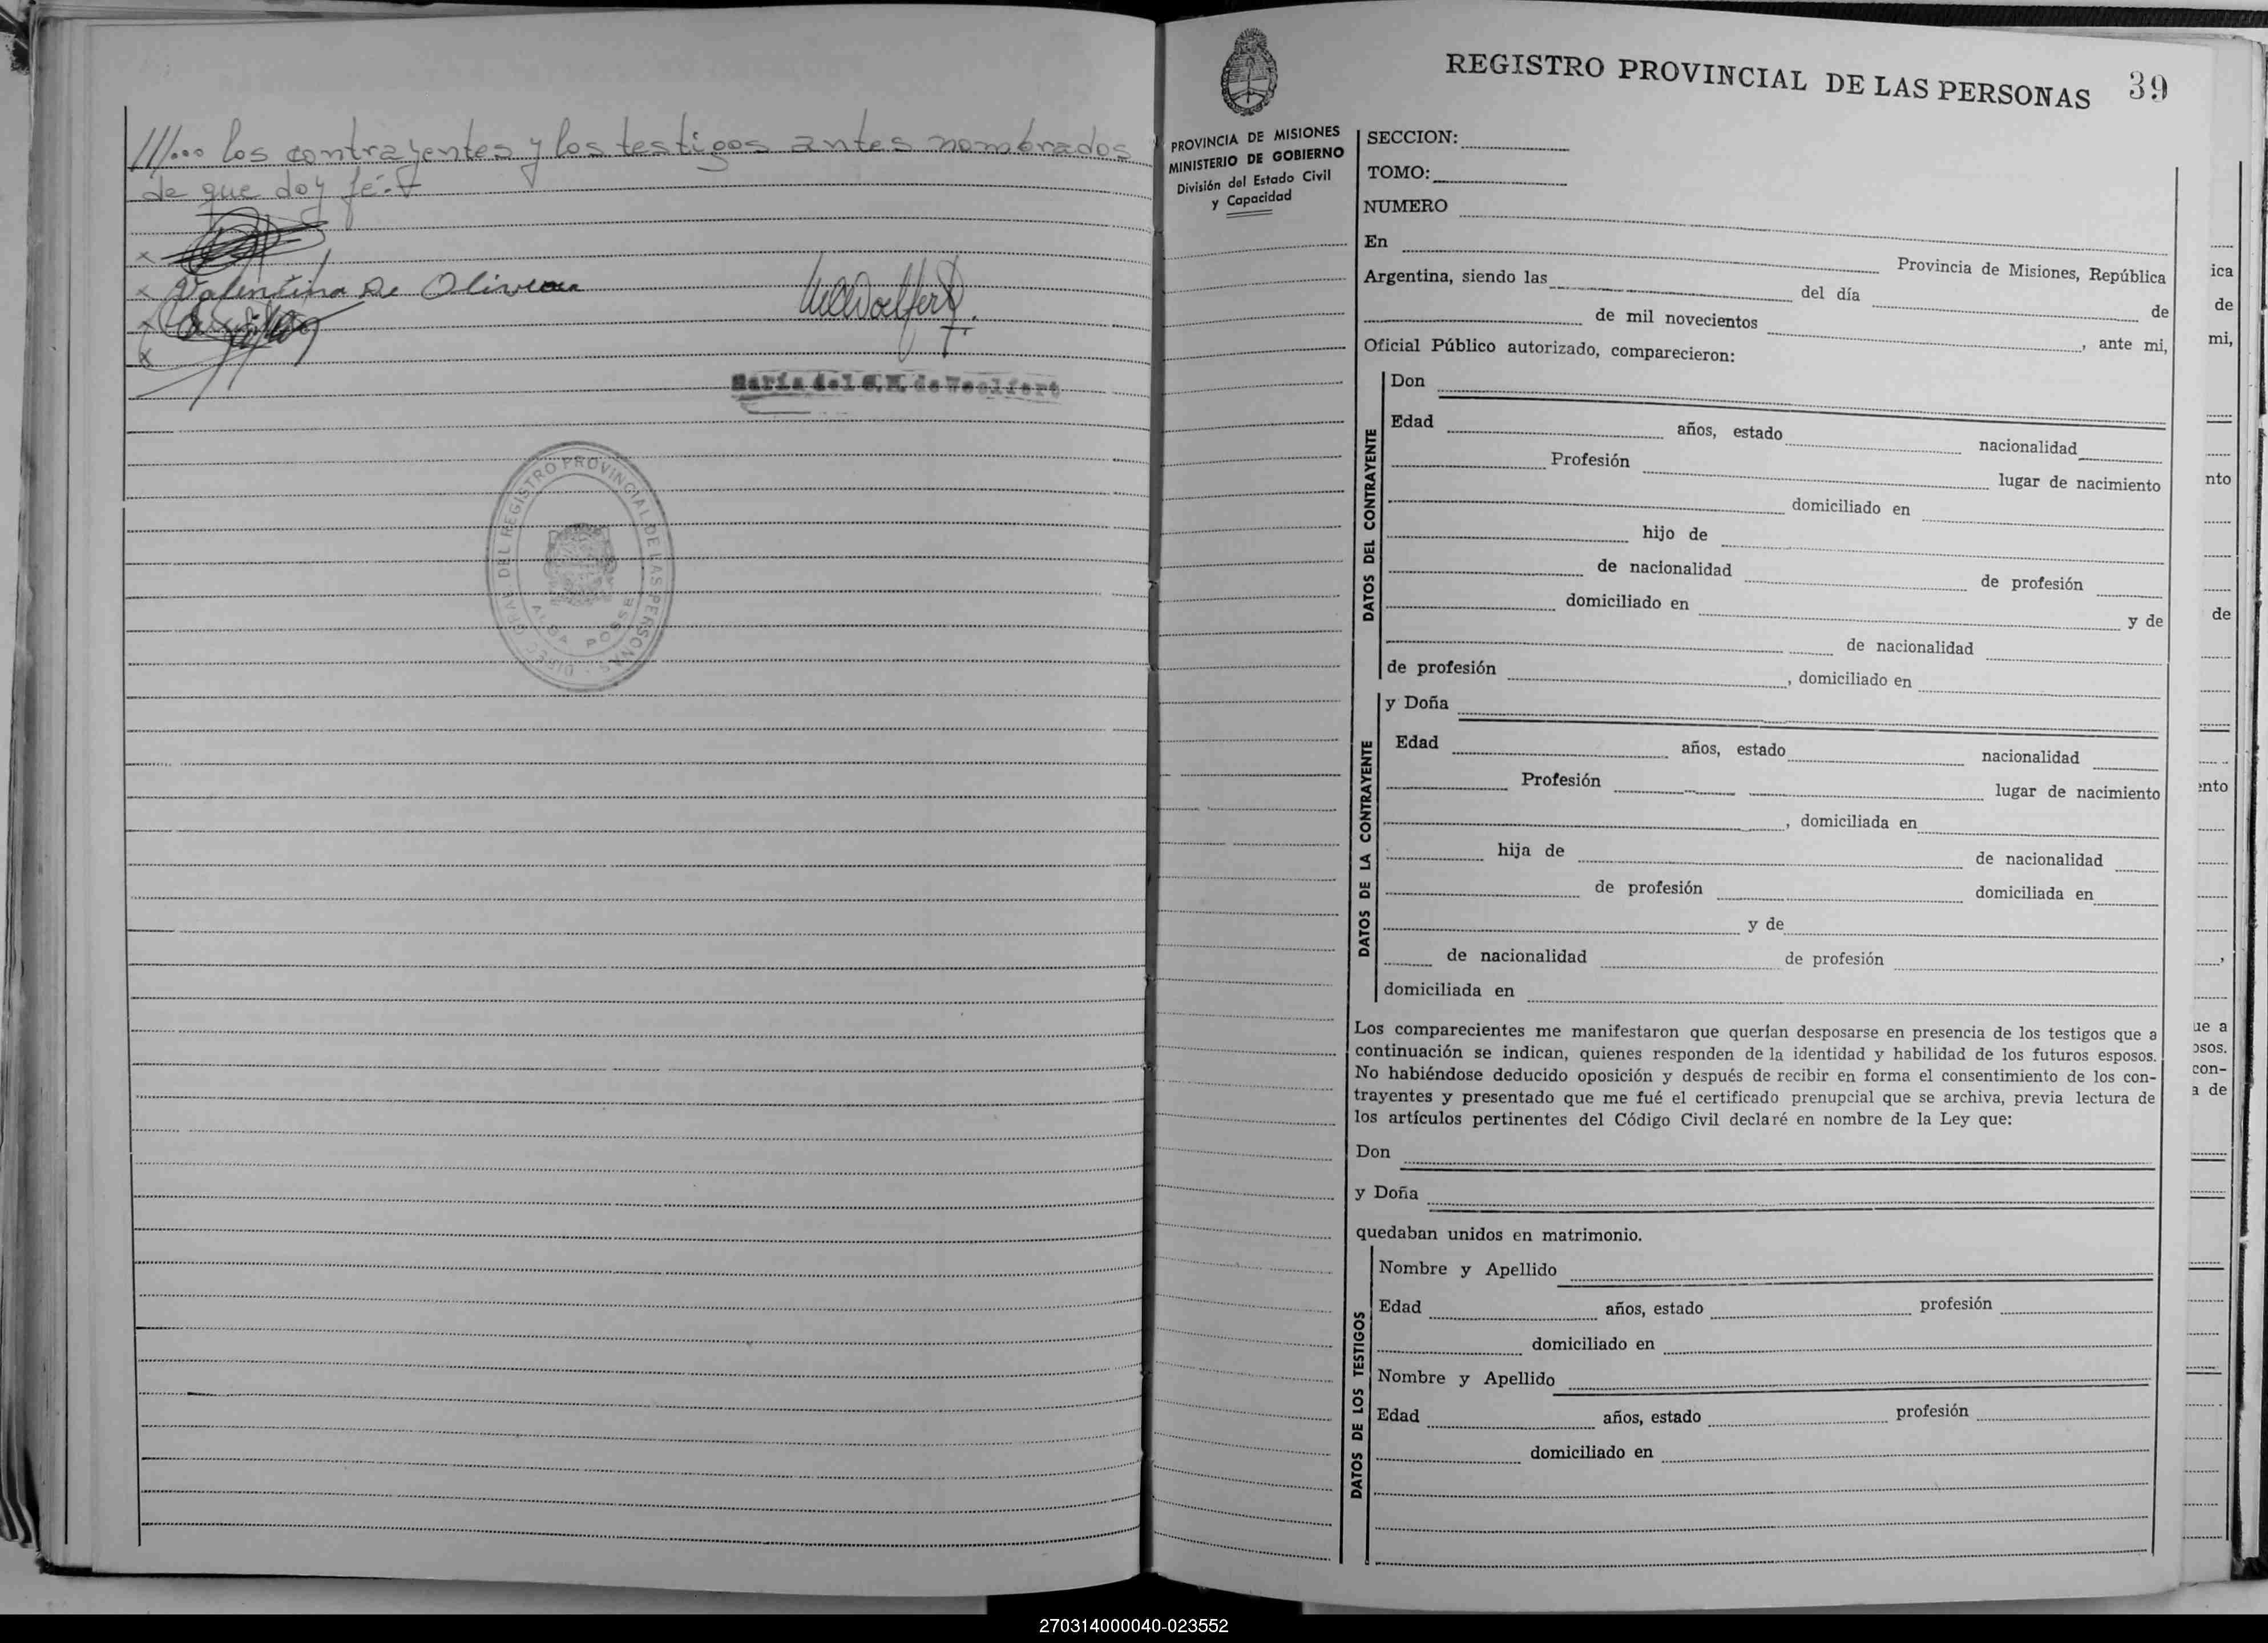 ///... los contrayentes y los testigos antes nombrados
de que doy fé.
x
x Valentina De Olivera
x
x
María del C.M. de Woelfert
DEL REGISTRO PROVINCIAL DE LAS PERSONAS
ALBA POSSE
PROVINCIA DE MISIONES
MINISTERIO DE GOBIERNO
División del Estado Civil
y Capacidad
REGISTRO PROVINCIAL DE LAS PERSONAS 39
SECCION:
TOMO:
NUMERO
En Provincia de Misiones, República
Argentina, siendo las del día de
de mil novecientos , ante mi,
Oficial Público autorizado, comparecieron:
DATOS DEL CONTRAYENTE
Don
Edad años, estado nacionalidad
Profesión lugar de nacimiento
domiciliado en
hijo de
de nacionalidad de profesión
domiciliado en y de
de nacionalidad
de profesión , domiciliado en
DATOS DE LA CONTRAYENTE
y Doña
Edad años, estado nacionalidad
Profesión lugar de nacimiento
, domiciliada en
hija de de nacionalidad
de profesión domiciliada en
y de
de nacionalidad de profesión
domiciliada en
Los comparecientes me manifestaron que querían desposarse en presencia de los testigos que a
continuación se indican, quienes responden de la identidad y habilidad de los futuros esposos.
No habiéndose deducido oposición y después de recibir en forma el consentimiento de los con-
trayentes y presentado que me fué el certificado prenupcial que se archiva, previa lectura de
los artículos pertinentes del Código Civil declaré en nombre de la Ley que:
Don
y Doña
quedaban unidos en matrimonio.
DATOS DE LOS TESTIGOS
Nombre y Apellido
Edad años, estado profesión
domiciliado en
Nombre y Apellido
Edad años, estado profesión
domiciliado en
ica
de
mi,
nto
de
ento
ue a
osos.
con-
a de
270314000040-023552